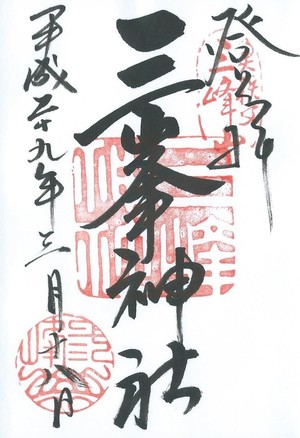 登拝
三峯神社
平成二十九年三月十八日